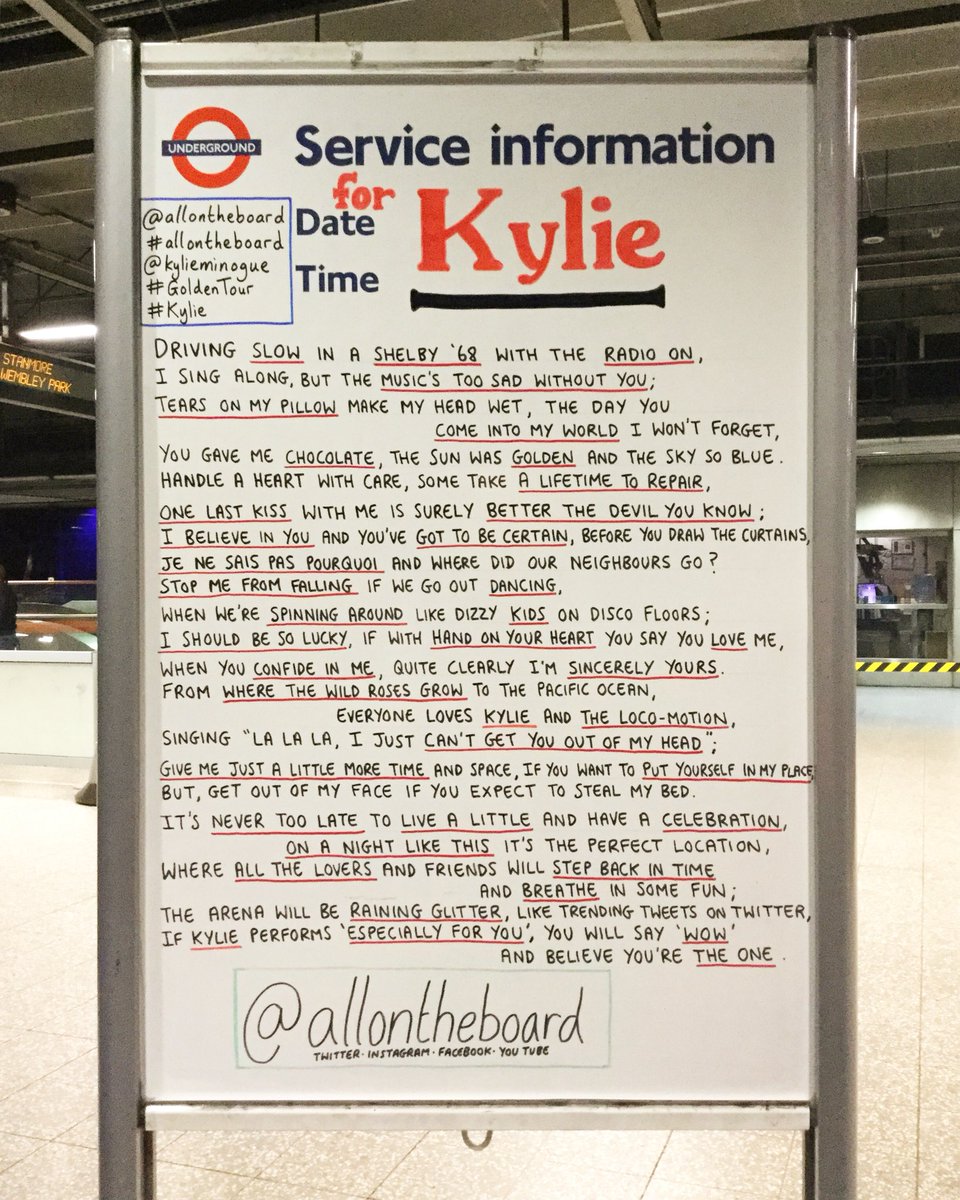 UNDERGROUND
Service information
for
Date
Kylie
Time
@allontheboard
#allontheboard
@kylieminogue
#GoldenTour
#Kylie
STANMORE
WEMBLEY PARK
DRIVING SLOW IN A SHELBY '68 WITH THE RADIO ON,
I SING ALONG, BUT THE MUSIC'S TOO SAD WITHOUT YOU;
TEARS ON MY PILLOW MAKE MY HEAD WET, THE DAY YOU
COME INTO MY WORLD I WON'T FORGET,
YOU GAVE ME CHOCOLATE, THE SUN WAS GOLDEN AND THE SKY SO BLUE.
HANDLE A HEART WITH CARE, SOME TAKE A LIFETIME TO REPAIR,
ONE LAST KISS WITH ME IS SURELY BETTER THE DEVIL YOU KNOW;
I BELIEVE IN YOU AND YOU'VE GOT TO BE CERTAIN, BEFORE YOU DRAW THE CURTAINS,
JE NE SAIS PAS POURQUOI AND WHERE DID OUR NEIGHBOURS GO?
STOP ME FROM FALLING IF WE GO OUT DANCING,
WHEN WE'RE SPINNING AROUND LIKE DIZZY KIDS ON DISCO FLOORS;
I SHOULD BE SO LUCKY, IF WITH HAND ON YOUR HEART YOU SAY YOU LOVE ME,
WHEN YOU CONFIDE IN ME, QUITE CLEARLY I'M SINCERELY YOURS.
FROM WHERE THE WILD ROSES GROW TO THE PACIFIC OCEAN,
EVERYONE LOVES KYLIE AND THE LOCO-MOTION,
SINGING "LA LA LA, I JUST CAN'T GET YOU OUT OF MY HEAD";
GIVE ME JUST A LITTLE MORE TIME AND SPACE, IF YOU WANT TO PUT YOURSELF IN MY PLACE,
BUT, GET OUT OF MY FACE IF YOU EXPECT TO STEAL MY BED.
IT'S NEVER TOO LATE TO LIVE A LITTLE AND HAVE A CELEBRATION,
ON A NIGHT LIKE THIS IT'S THE PERFECT LOCATION,
WHERE ALL THE LOVERS AND FRIENDS WILL STEP BACK IN TIME
AND BREATHE IN SOME FUN;
THE ARENA WILL BE RAINING GLITTER, LIKE TRENDING TWEETS ON TWITTER,
IF KYLIE PERFORMS 'ESPECIALLY FOR YOU', YOU WILL SAY 'WOW'
AND BELIEVE YOU'RE THE ONE.
@allontheboard
TWITTER · INSTAGRAM · FACEBOOK · YOU TUBE